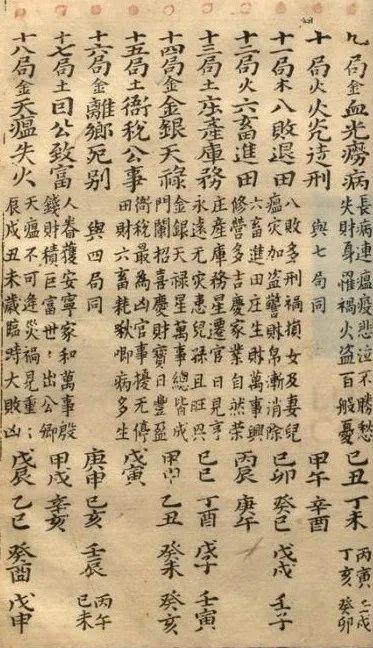 九局金血光癆病
長病連瘟疫悲泣不勝愁
失財身罹禍火盜百般憂
己丑 丁未 丙寅 壬戌
丁亥 癸卯
十局火火光徒刑 與七局同 甲午 辛酉
十一局木八敗退田
八敗多刑禍損女及妻兒
瘟灾加盜警財帛漸消除
己卯 癸巳 戊戌 壬子
十二局火六畜進田
六畜進田庄生財萬事興
修營多吉慶家業自然荣
丙辰 庚午
十三局土庄產庫務
庄產庫務星遷官日見亨
永遠无灾患兒孫且旺興
己巳 丁酉 戊子 壬寅
十四局金金銀天祿
金銀天祿星萬事總皆成
門闌招喜慶財寶日豊盈
甲申 乙丑 癸未 癸亥
十五局土衙稅公事
衙稅最為凶官事擾无停
田財六畜耗啾唧病多生
戊寅
十六局金離鄉死別 與四局同 庚申 己亥 壬辰 丙午
己未
十七局土曰公致富
人眷獲安寧家和萬事殷
錢財積巨富世々出公卿
甲戌 辛亥
十八局金天瘟失火
天瘟不可逢災禍見重々
辰戌丑未歲臨時大敗凶
戊辰 乙巳 癸酉 戊申